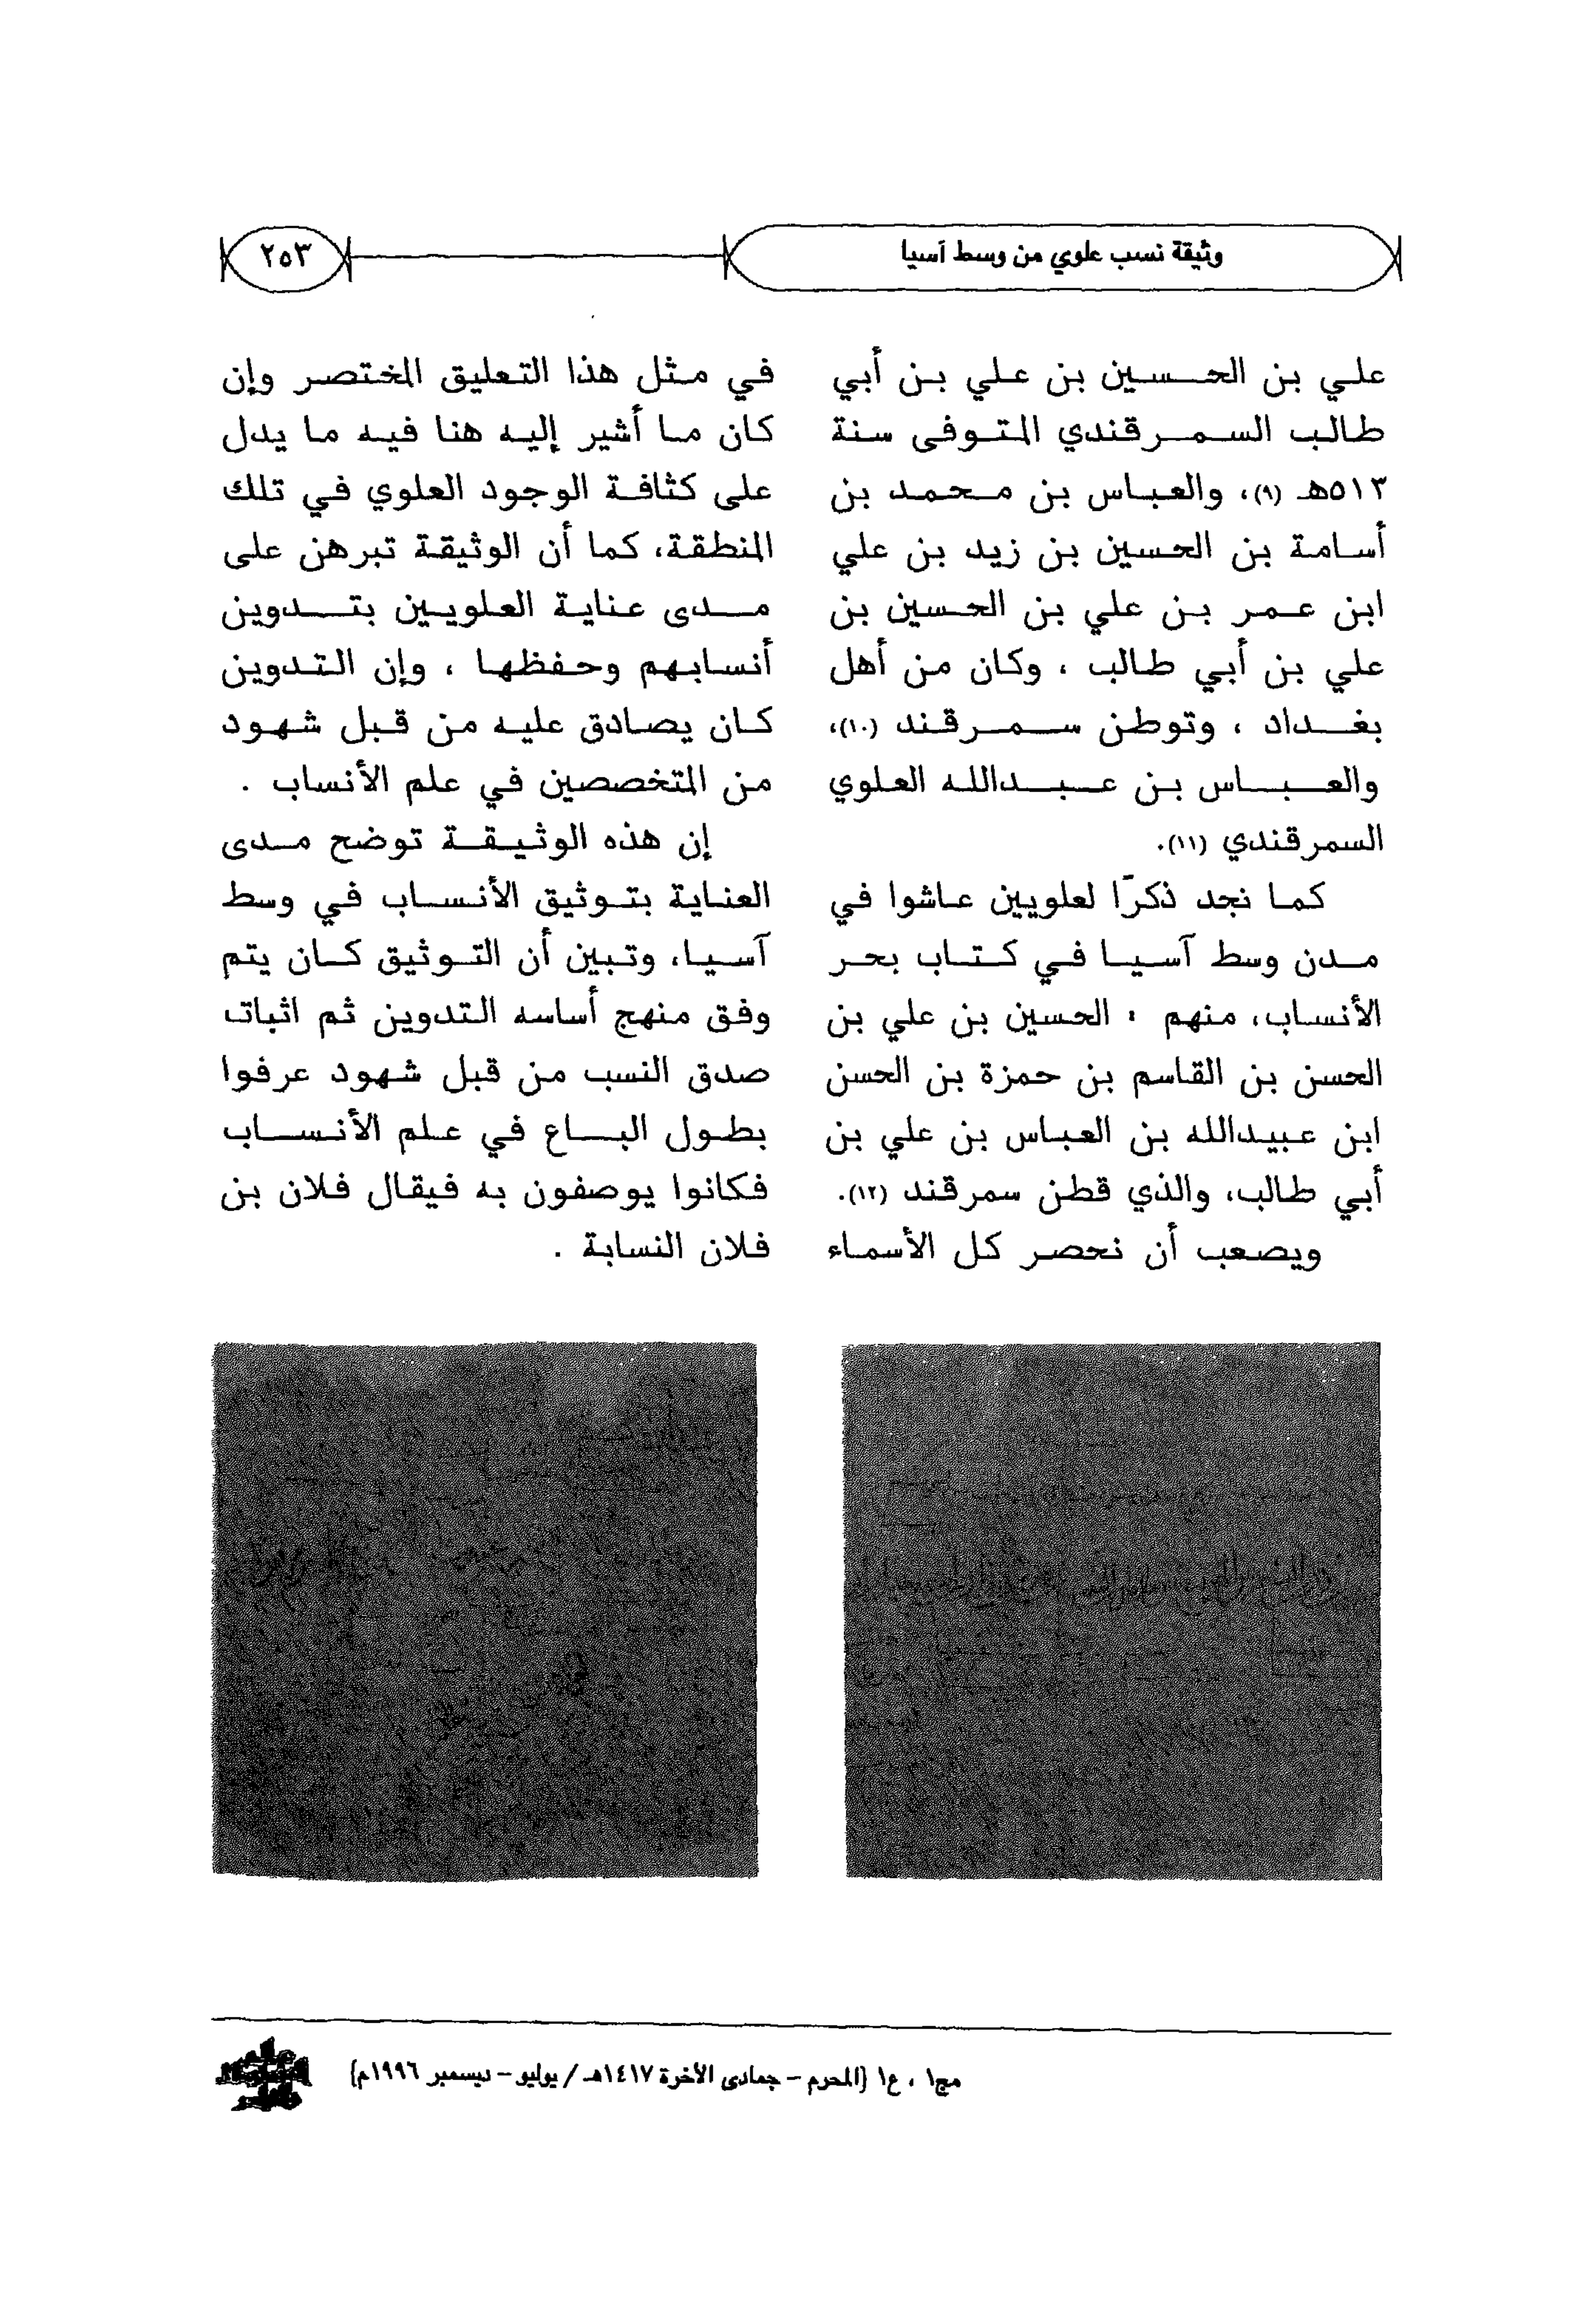 وثيقة نسب علوي من وسط آسيا
٢٥٣
علي بن الحسين بن علي بن أبي
طالب السمرقندي المتوفى سنة
٥١٣هـ (٩)، والعباس بن محمد بن
أسامة بن الحسين بن زيد بن علي
ابن عمر بن علي بن الحسين بن
علي بن أبي طالب ، وكان من أهل
بغداد ، وتوطن سمرقند (١٠)،
والعباس بن عبدالله العلوي
السمرقندي (١١).
كما نجد ذكرًا لعلويين عاشوا في
مدن وسط آسيا في كتاب بحر
الأنساب، منهم : الحسين بن علي بن
الحسن بن القاسم بن حمزة بن الحسن
ابن عبيدالله بن العباس بن علي بن
أبي طالب، والذي قطن سمرقند (١٢).
ويصعب أن نحصر كل الأسماء
في مثل هذا التعليق المختصر وإن
كان ما أشير إليه هنا فيه ما يدل
على كثافة الوجود العلوي في تلك
المنطقة، كما أن الوثيقة تبرهن على
مدى عناية العلويين بتدوين
أنسابهم وحفظها ، وإن التدوين
كان يصادق عليه من قبل شهود
من المتخصصين في علم الأنساب .
إن هذه الوثيقة توضح مدى
العناية بتوثيق الأنساب في وسط
آسيا، وتبين أن التوثيق كان يتم
وفق منهج أساسه التدوين ثم اثبات
صدق النسب من قبل شهود عرفوا
بطول الباع في علم الأنساب
فكانوا يوصفون به فيقال فلان بن
فلان النسابة .
مج١ ، ع١ (المحرم - جمادى الآخرة ١٤١٧هـ / يوليو - ديسمبر ١٩٩٦م)